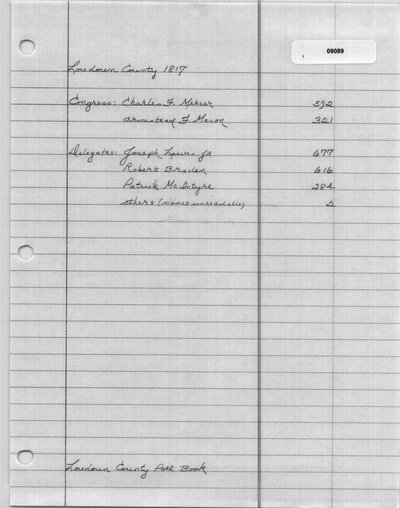 09089
Loudoun County 1817
Congress: Charles F Mercer 592
Armistead F Mason 321
Delegates: Joseph Lewis JR 677
Robert Braden 616
Patrick McIntyre 284
others (names unreadable) 2
Loudoun County Poll Book